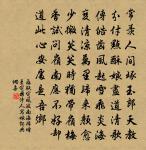 常羨人間琢玉郎天教
分付點酥娘盡道清歌
傳皓齒風起雪飛炎海
變清涼萬里歸來顏愈
少微笑笑時猶帶嶺梅
香試問嶺南應不好却
道此心安處是吾鄉
定風波南海歸贈
王定國侍人寓娘